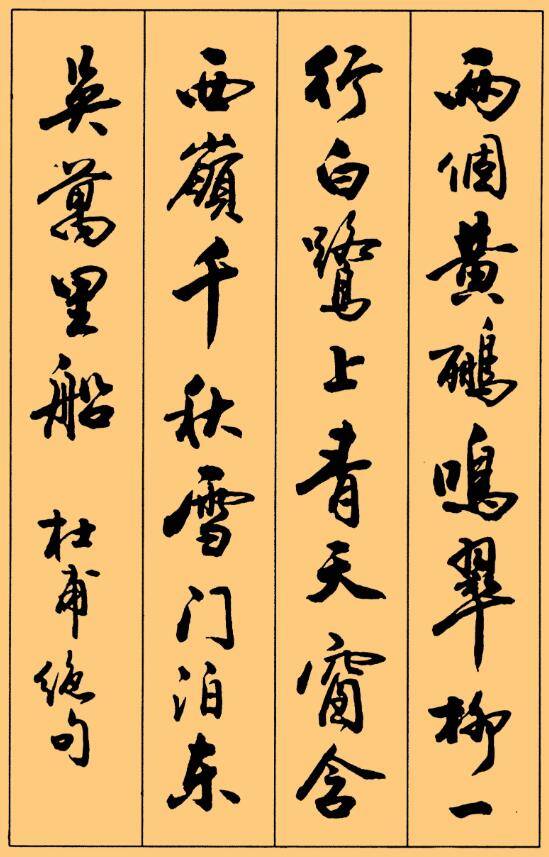 兩個黄鸝鳴翠柳一
行白鷺上青天窗含
西嶺千秋雪门泊东
吳萬里船
杜甫绝句